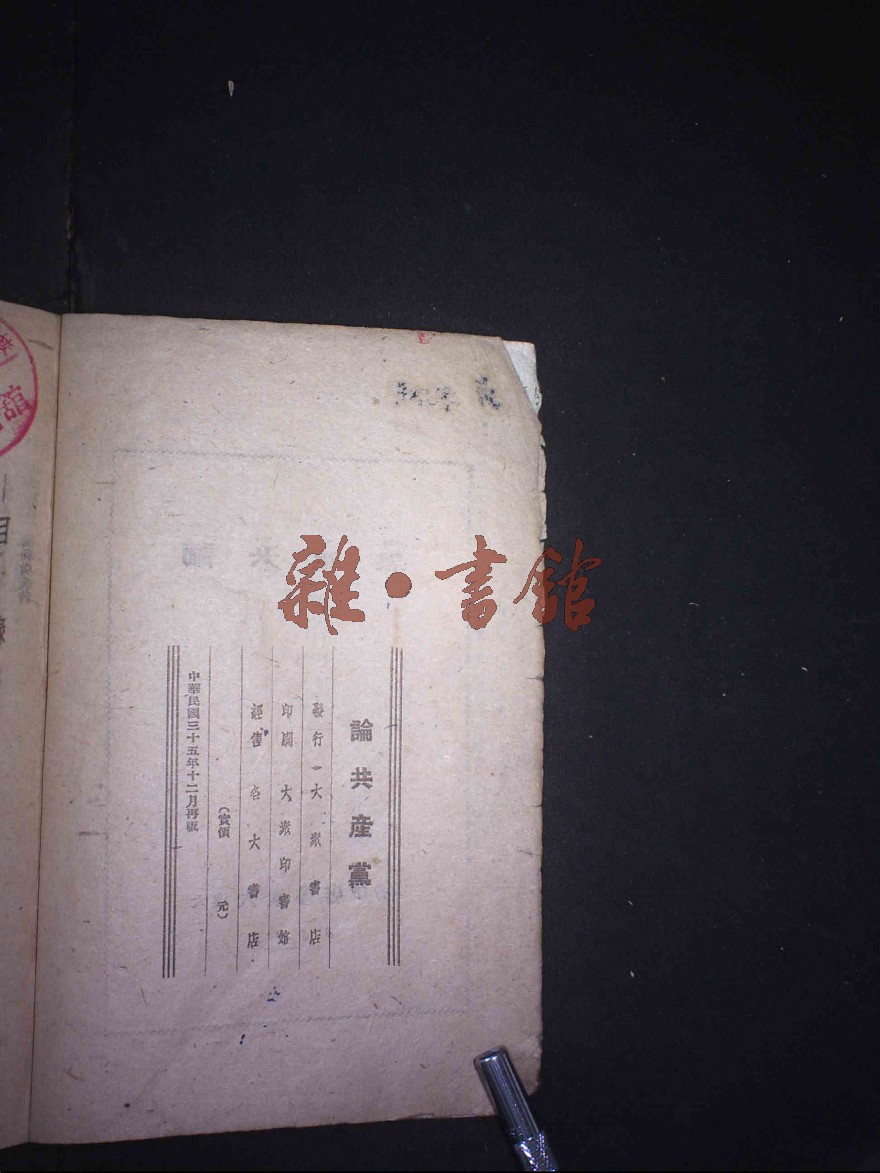 雜·書館
論共產黨
發行 大衆書店
印刷 大衆印書館
經售 各大書店
(實價 元)
中華民國三十五年十二月再版
館